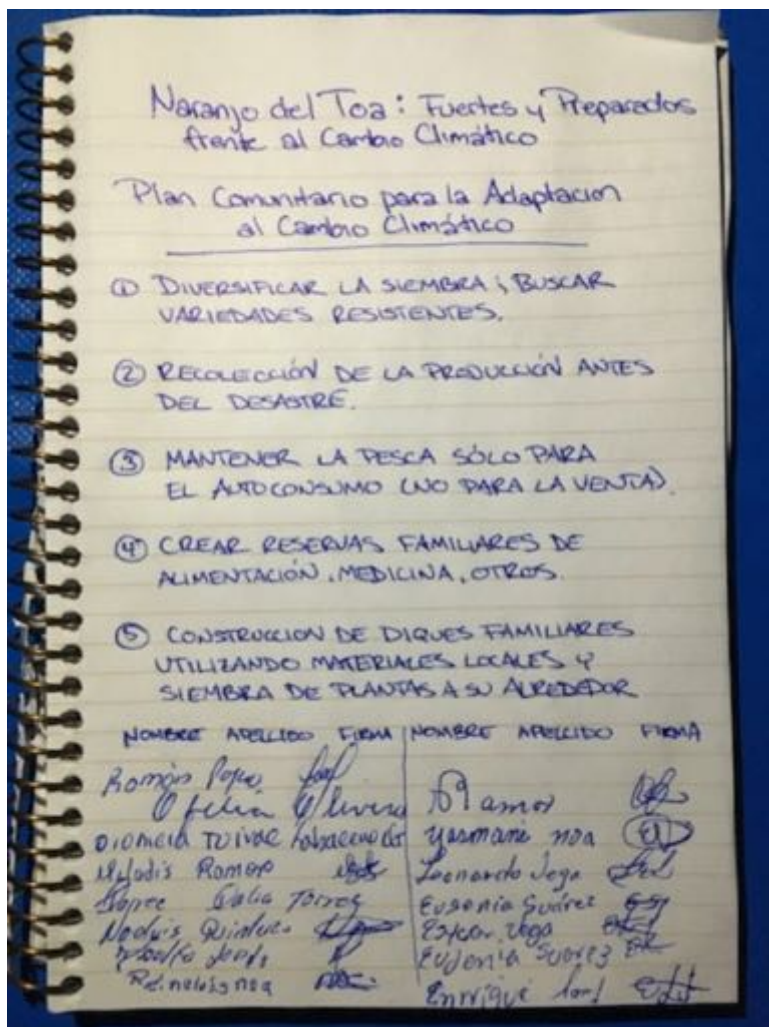 Naranjo del Toa: Fuertes y Preparados
frente al Cambio Climático
Plan Comunitario para la Adaptacion
al Cambio Climático
① DIVERSIFICAR LA SIEMBRA; BUSCAR
VARIEDADES RESISTENTES.
② RECOLECCIÓN DE LA PRODUCCIÓN ANTES
DEL DESASTRE.
③ MANTENER LA PESCA SÓLO PARA
EL AUTOCONSUMO (NO PARA LA VENTA).
④ CREAR RESERVAS FAMILIARES DE
ALIMENTACIÓN, MEDICINA, OTROS.
⑤ CONSTRUCCION DE DIQUES FAMILIARES
UTILIZANDO MATERIALES LOCALES Y
SIEMBRA DE PLANTAS A SU ALREDEDOR
NOMBRE APELLIDO FIRMA NOMBRE APELLIDO FIRMA
Román
Ofelia Olivero
Ramor
yasmani noa
Romero
Leonardo Vega
Torres
Eugenia Suárez
Vega
Eugenia Suarez
noa
Enrrique